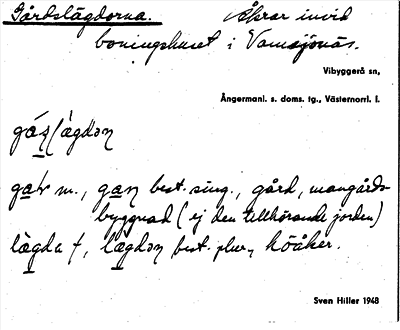 Gårdslägdorna. Åkrar invid
boningshuset i Vamsjönäs.
Vibyggerå sn,
Ångermanl. s. doms. tg., Västernorrl. l.
gar m., gan best. sing., gård, mangårds-
byggnad (ej den tillhörande jorden)
lägda f, lägdən best. plur., höåker.
Sven Hiller 1948